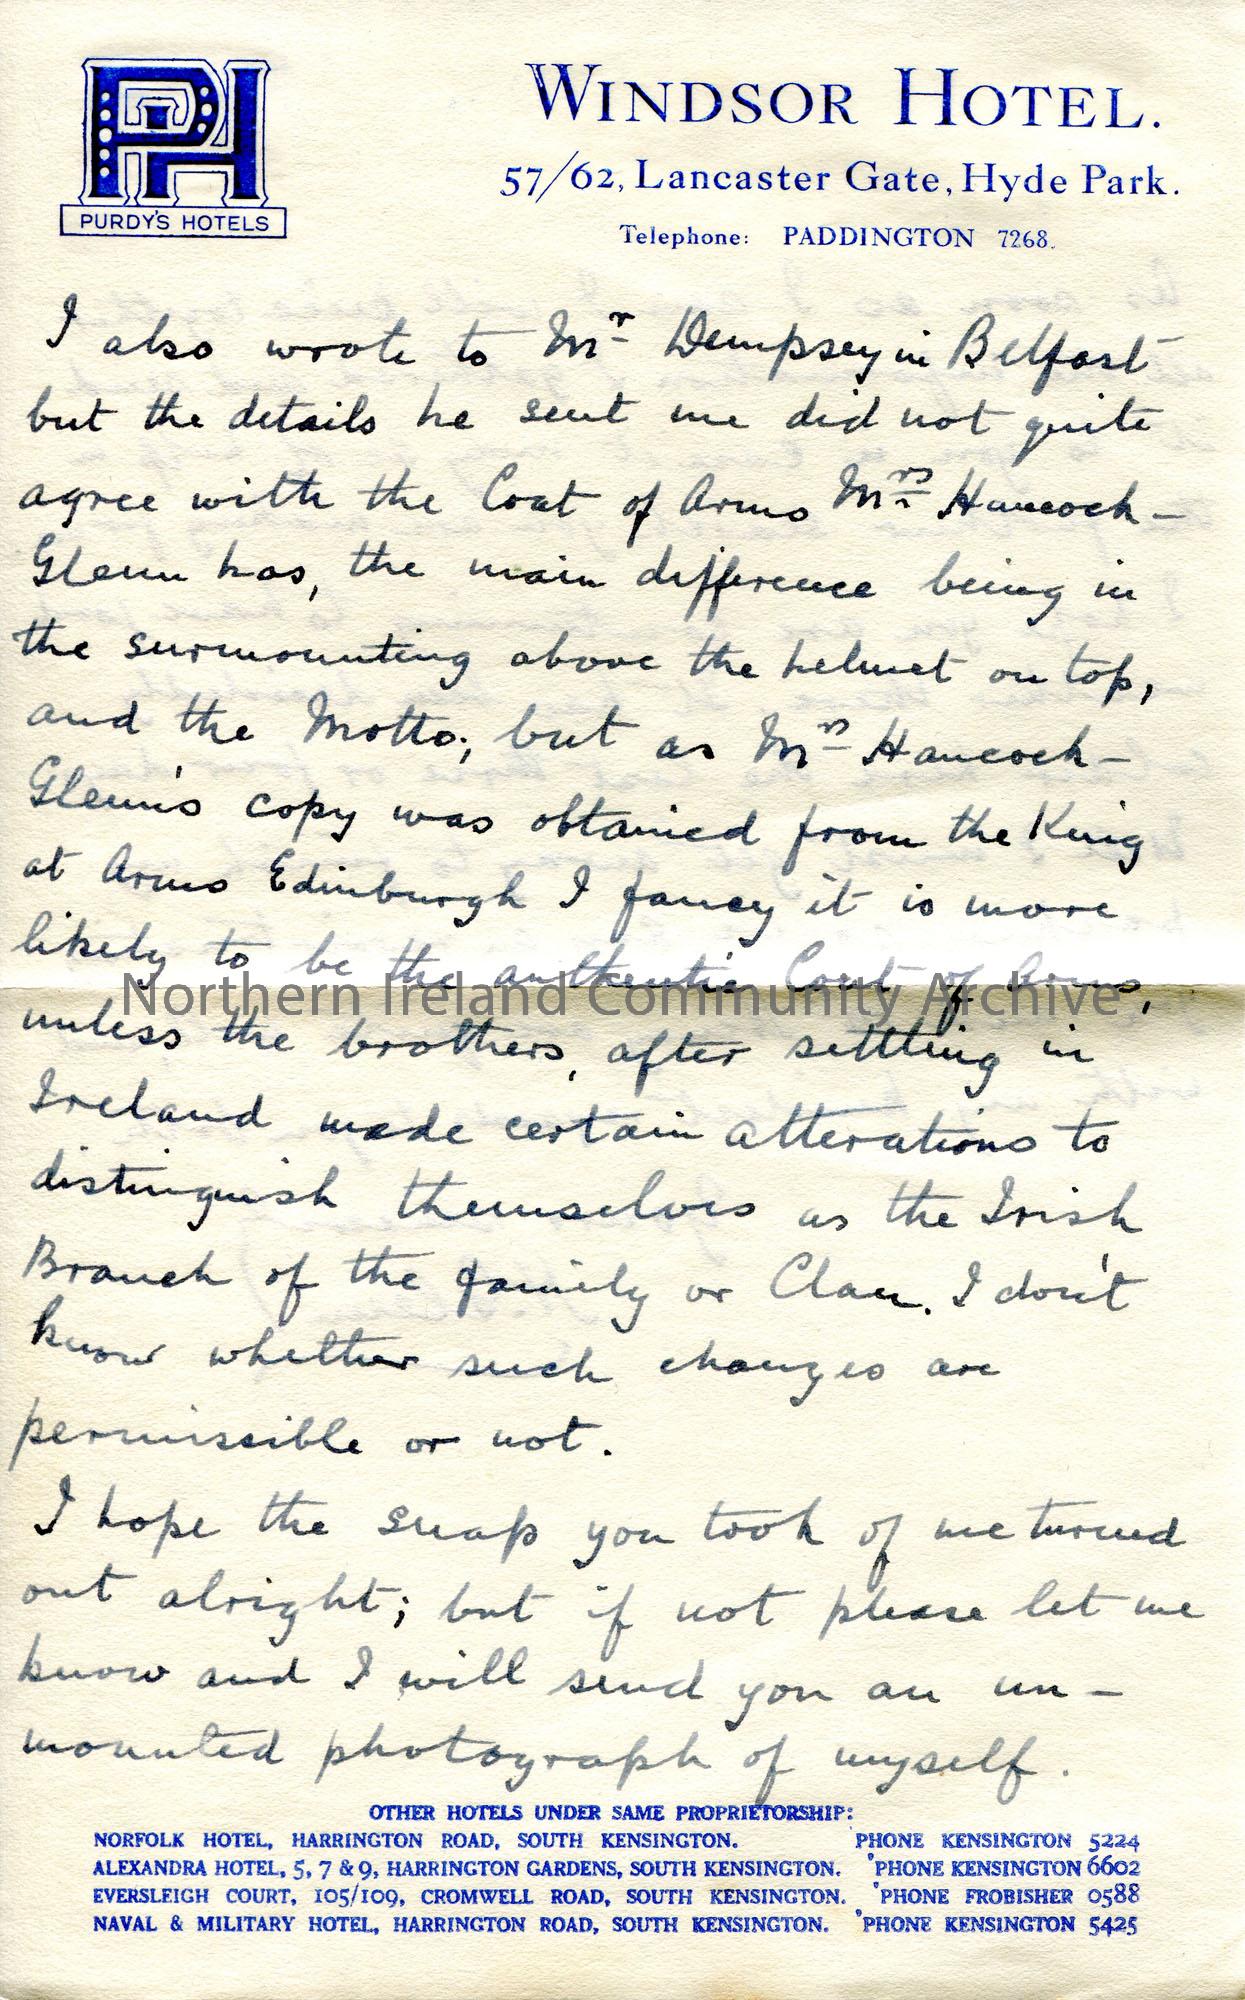 WINDSOR HOTEL.
57/62, Lancaster Gate, Hyde Park.
Telephone: PADDINGTON 7268.
PH
PURDY'S HOTELS
I also wrote to Mr Dempsey in Belfast
but the details he sent me did not quite
agree with the Coat of Arms Mrs Hancock-
Glenn has, the main difference being in
the surmounting above the helmet on top,
and the Motto; but as Mrs Hancock-
Glenn's copy was obtained from the King
at Arms Edinburgh I fancy it is more
likely to be the authentic Coat of Arms,
Northern Ireland Community Archive
unless the brothers, after settling in
Ireland made certain alterations to
distinguish themselves as the Irish
Branch of the family or Clan. I don't
know whether such changes are
permissible or not.
I hope the snap you took of me turned
out alright; but if not please let me
know and I will send you an un-
mounted photograph of myself.
OTHER HOTELS UNDER SAME PROPRIETORSHIP:
NORFOLK HOTEL, HARRINGTON ROAD, SOUTH KENSINGTON. PHONE KENSINGTON 5224
ALEXANDRA HOTEL, 5, 7 & 9, HARRINGTON GARDENS, SOUTH KENSINGTON. 'PHONE KENSINGTON 6602
EVERSLEIGH COURT, 105/109, CROMWELL ROAD, SOUTH KENSINGTON. 'PHONE FROBISHER 0588
NAVAL & MILITARY HOTEL, HARRINGTON ROAD, SOUTH KENSINGTON. 'PHONE KENSINGTON 5425